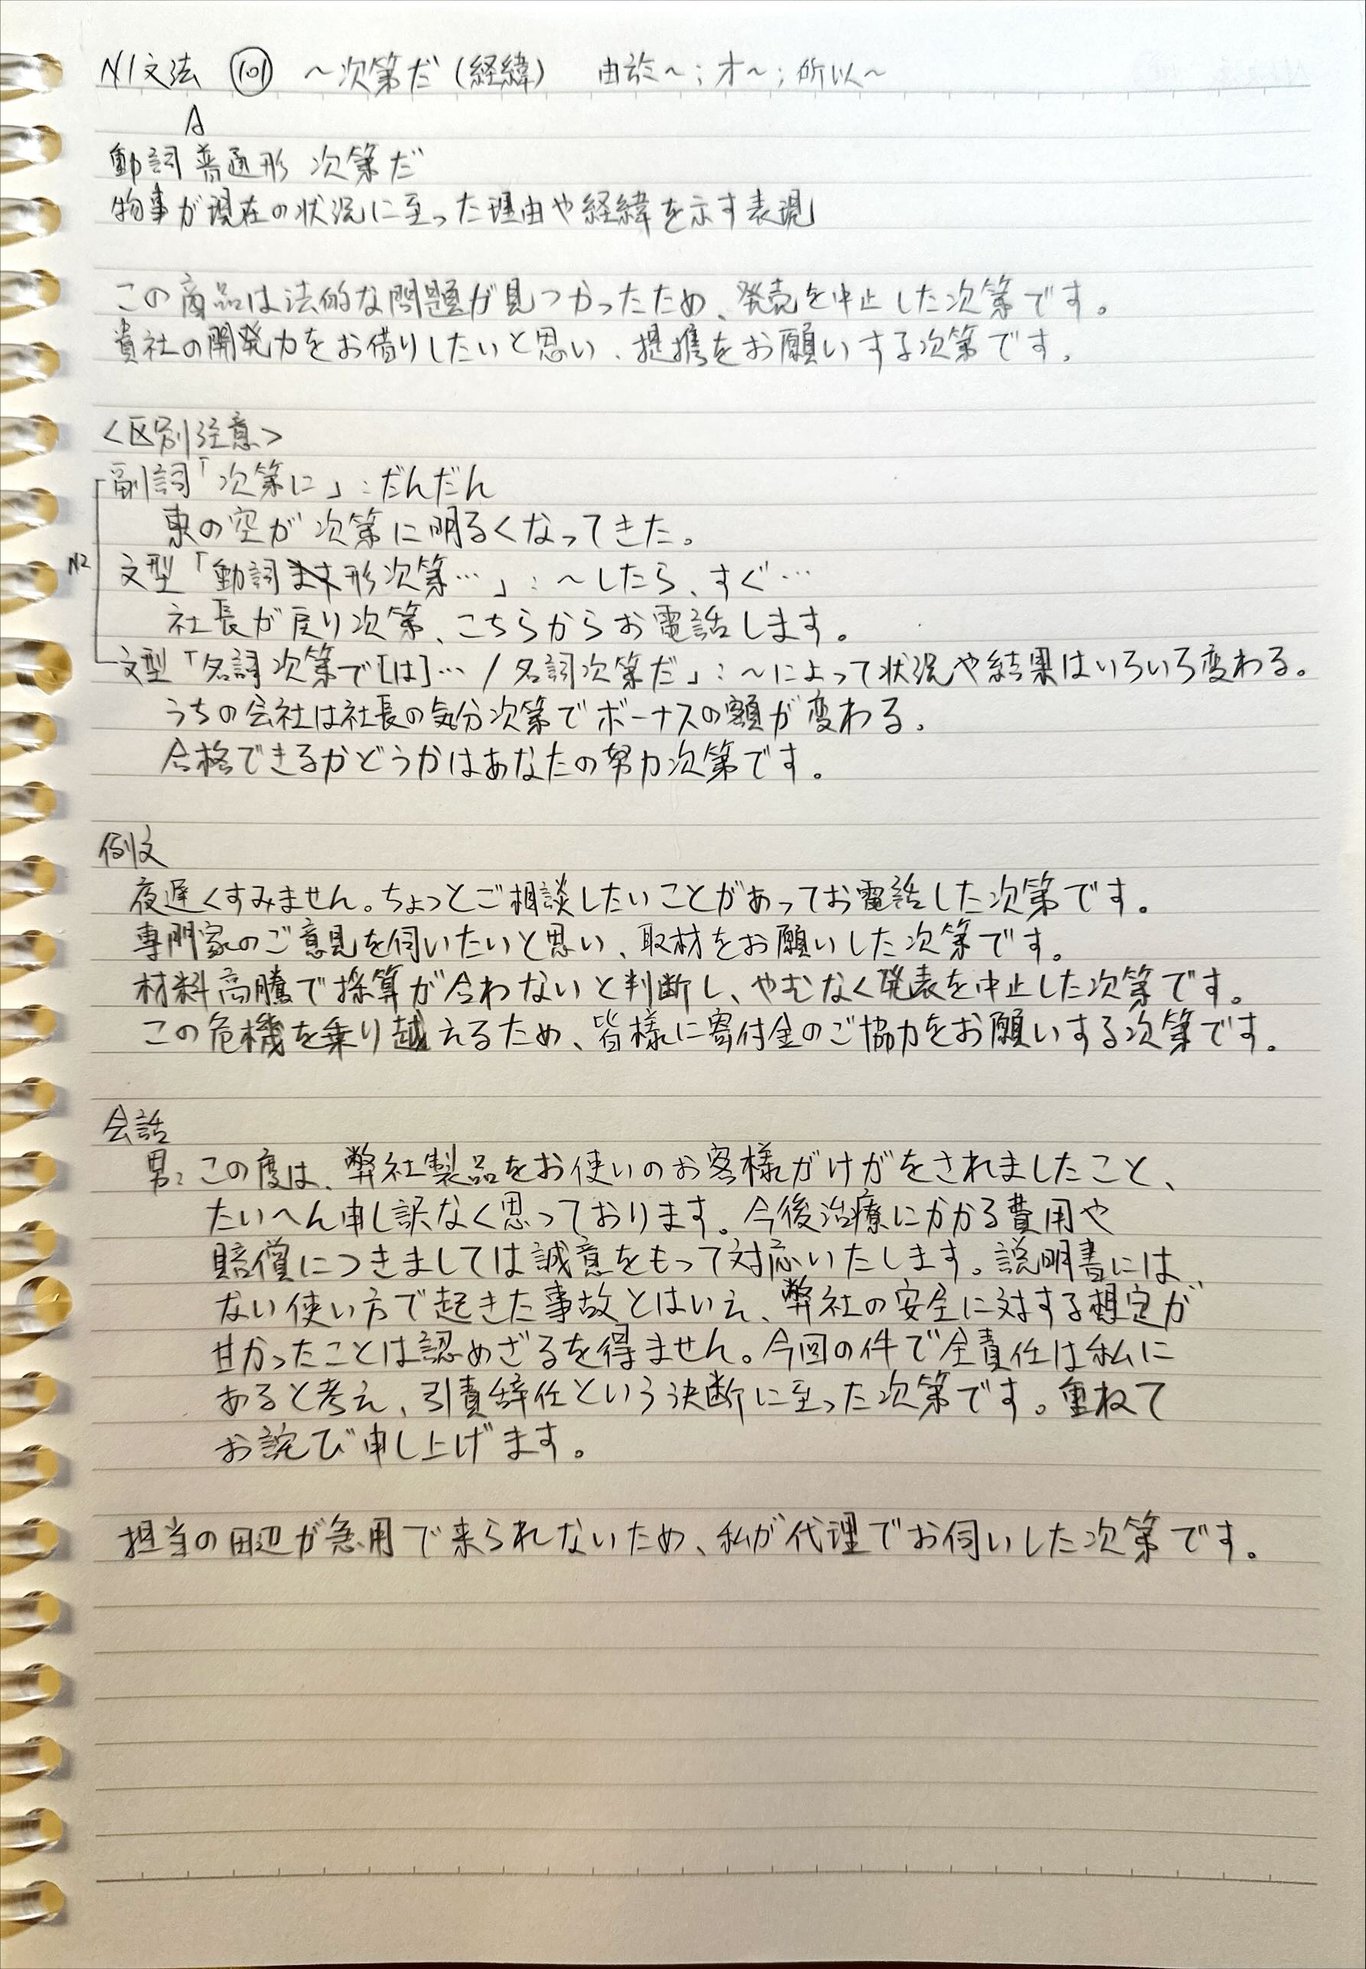 N1文法 101 ～次第だ(経緯) 由於～;才～;所以～
A
動詞普通形 次第だ
物事が現在の状況に至った理由や経緯を示す表現
この商品は法的な問題が見つかったため、発売を中止した次第です。
貴社の開発力をお借りしたいと思い、提携をお願いする次第です。
<区別注意>
副詞「次第に」:だんだん
東の空が次第に明るくなってきた。
N2 文型「動詞ます形次第…」:～したら、すぐ…
社長が戻り次第、こちらからお電話します。
文型「名詞次第で[は]…/名詞次第だ」:～によって状況や結果はいろいろ変わる。
うちの会社は社長の気分次第でボーナスの額が変わる。
合格できるかどうかはあなたの努力次第です。
例文
夜遅くすみません。ちょっとご相談したいことがあってお電話した次第です。
専門家のご意見を伺いたいと思い、取材をお願いした次第です。
材料高騰で採算が合わないと判断し、やむなく発表を中止した次第です。
この危機を乗り越えるため、皆様に寄付金のご協力をお願いする次第です。
会話
男:この度は、弊社製品をお使いのお客様がけがをされましたこと、
たいへん申し訳なく思っております。今後治療にかかる費用や
賠償につきましては誠意をもって対応いたします。説明書には
ない使い方で起きた事故とはいえ、弊社の安全に対する想定が
甘かったことは認めざるを得ません。今回の件で全責任は私に
あると考え、引責辞任という決断に至った次第です。重ねて
お詫び申し上げます。
担当の田辺が急用で来られないため、私が代理でお伺いした次第です。